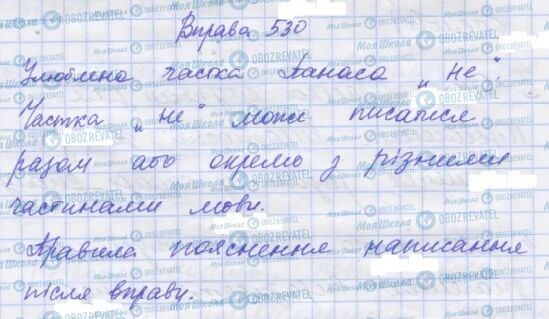 Вправа 530
Улюблена частка Панаса „не".
Частка „не" може писатися
разом або окремо з різними
частинами мови.
Правила пояснення написання
після вправи.